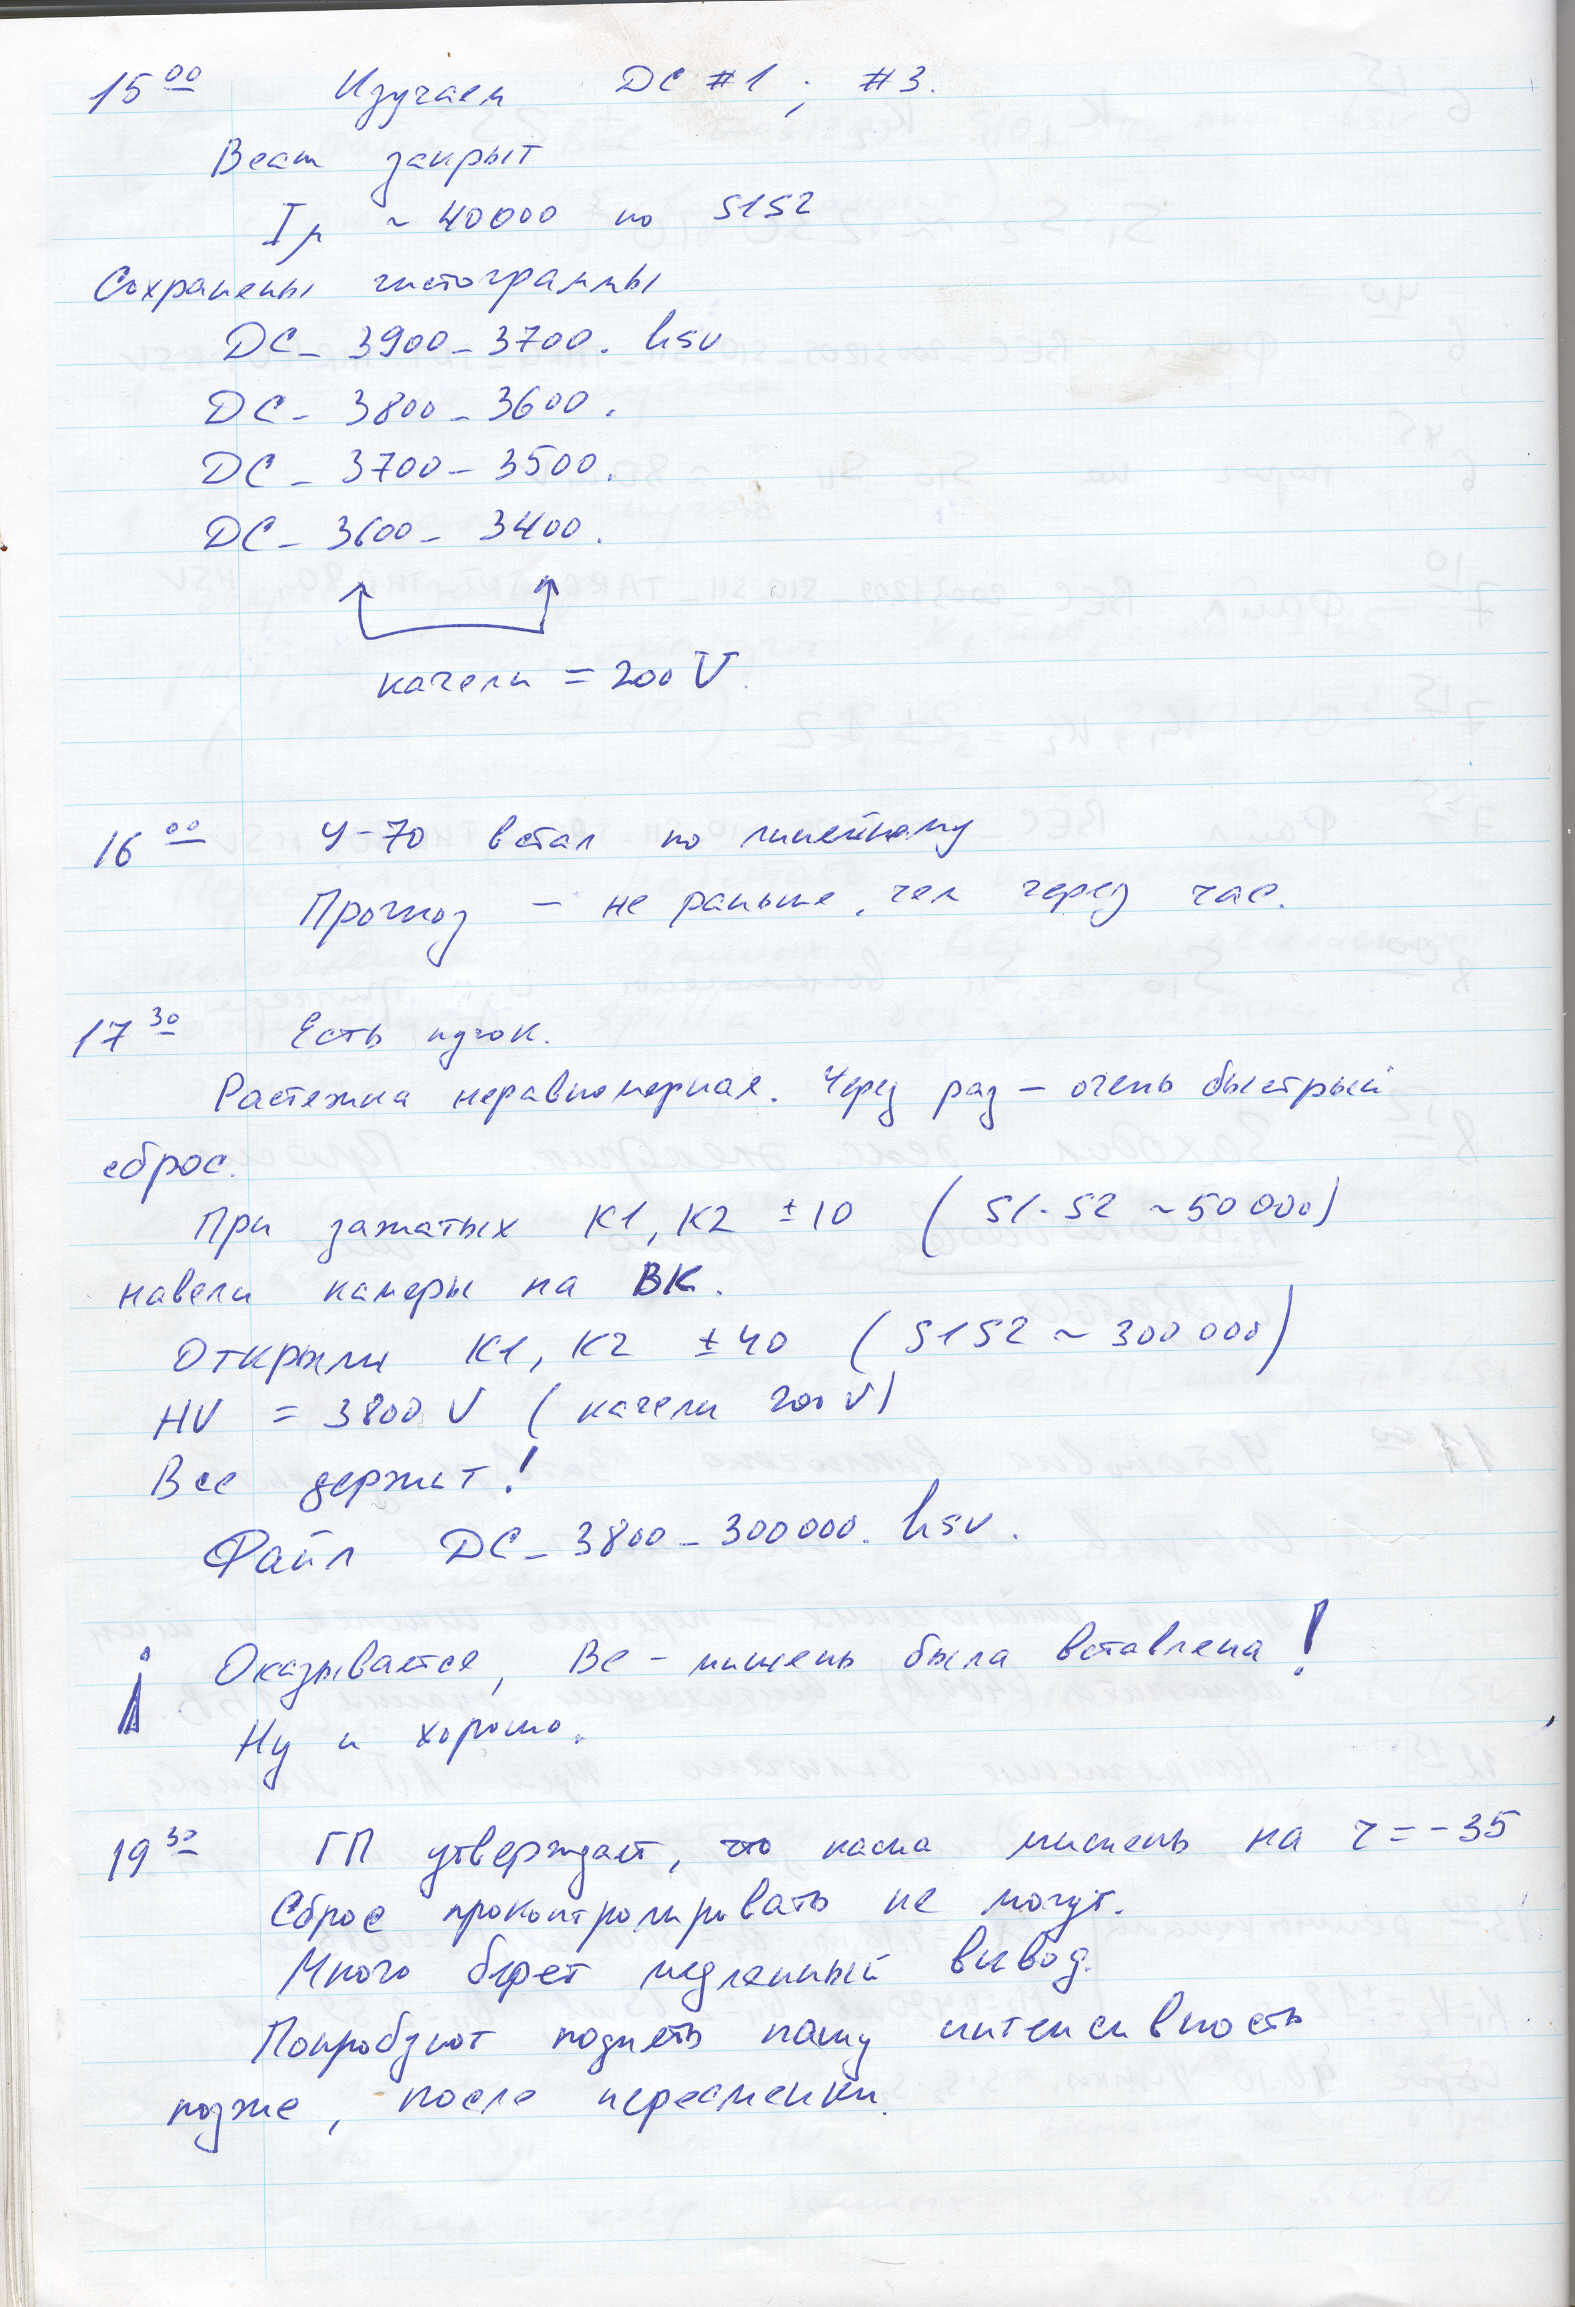 15 00 Изучаем DC #1; #3.
Beam закрыт
Iμ ~ 40000 по S1S2
Сохранены гистограммы
DC_3900_3700.hsv
DC_3800_3600.
DC_3700_3500.
DC_3600_3400.
качели = 200 V.
16 00 У-70 встал по линейному
Прогноз – не раньше, чем через час.
17 30 Есть пучок.
Растяжка неравномерная. Через раз – очень быстрый
сброс.
При зажатых K1, K2 ±10 (S1·S2 ~ 50000)
навели камеры на ВК.
Открыли K1, K2 ±40 (S1S2 ~ 300000)
HV = 3800 V (качели 200 V)
Все держит!
Файл DC_3800_300000.hsv.
¡ Оказывается, Be-мишень была вставлена!
Ну и хорошо.
19 30 ГП утверждает, что наша мишень на r = -35
Сброс проконтролировать не могут.
Много берет медленный вывод.
Попробуют поднять нашу интенсивность
позже, после пересменки.